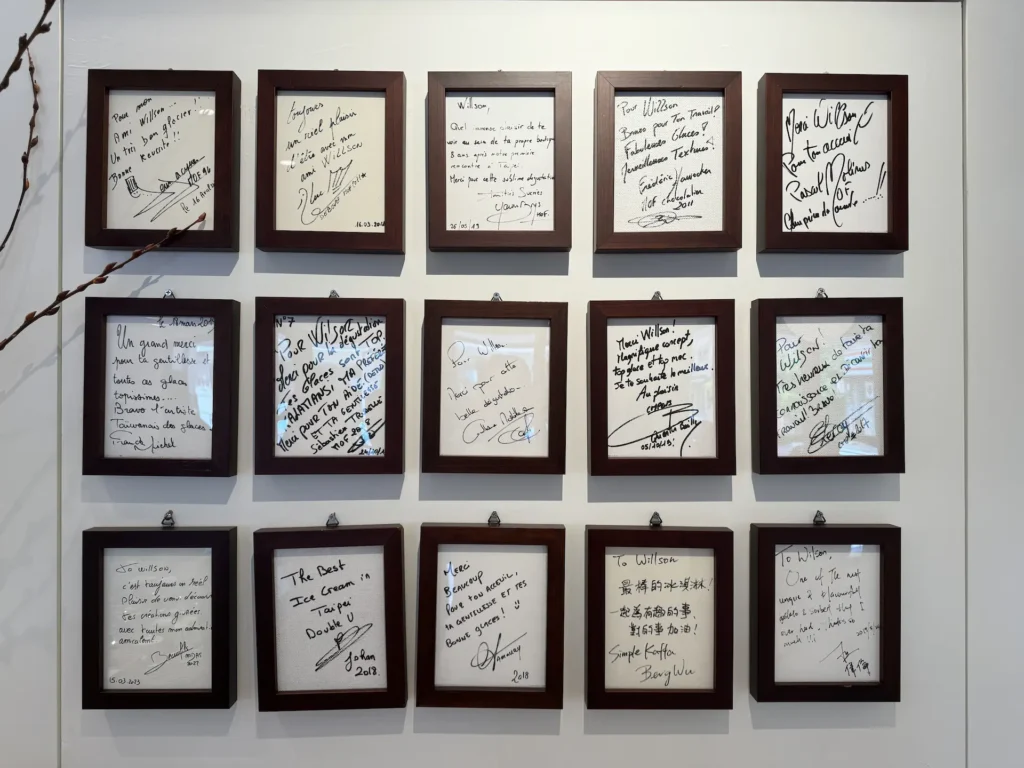 Pour mon
Ami Willson...
Un très bon glacier
Réussite !!
Bonne
MOF 96
Toujours
un réel plaisir
d'être avec mon
ami WILLSON
16.03.2018
Willson,
Quel de te
voir au sein de ta propre boutique
8 ans après notre première
rencontre à Taipei.
Merci pour cette sublime dégustation
MOF.
26/03/19
Pour Willson
Bravo pour Ton Travail!
Fabuleuses Glaces!
Merveilleuses Textures!
Frédéric
MOF chocolatier
2011
Merci Willson
Pour ton accueil
Pascal Molines
Champion du Monde...!!
Un grand merci
pour ta gentillesse et
toutes ces glaces
topissimes...
Bravo l'artiste
Taïwanais des glaces
Franck Michel
N°7
POUR WILSON
Merci POUR LA dégustation
Tes GLACES SONT TOP
MA PRÉFÉRÉE
Merci POUR TON AIDE
ET TA GENTILLESSE
Sébastien
MOF
Pour Willson
Merci pour cette
belle dégustation
Merci Willson!
Magnifique concept,
top glace et top mec.
Je te souhaite le meilleur.
Au plaisir
Quentin Bailly
05/10/19!
Pour
WILSON!
Très heureux de faire ta
connaissance et découvrir ton
Travail! Bravo
To Willson,
c'est toujours un réel
plaisir de venir découvrir
tes créations glacées
avec toutes mon
amicalement
15.03.2023
The Best
Ice Cream in
Taipei
Double U
Johan
2018.
MERCI
BEAUCOUP
POUR TON ACCEUIL,
TA GENTILLESSE ET TES
BONNE GLACES!
2018
To Willson
最棒的冰淇淋!
一起為有趣的事,
對的事加油!
Simple Kaffa
Berg Wu
To Wilson,
One of the most
unique & flavourful
gelato & sorbet shop I
ever had. Thanks so
much !!!